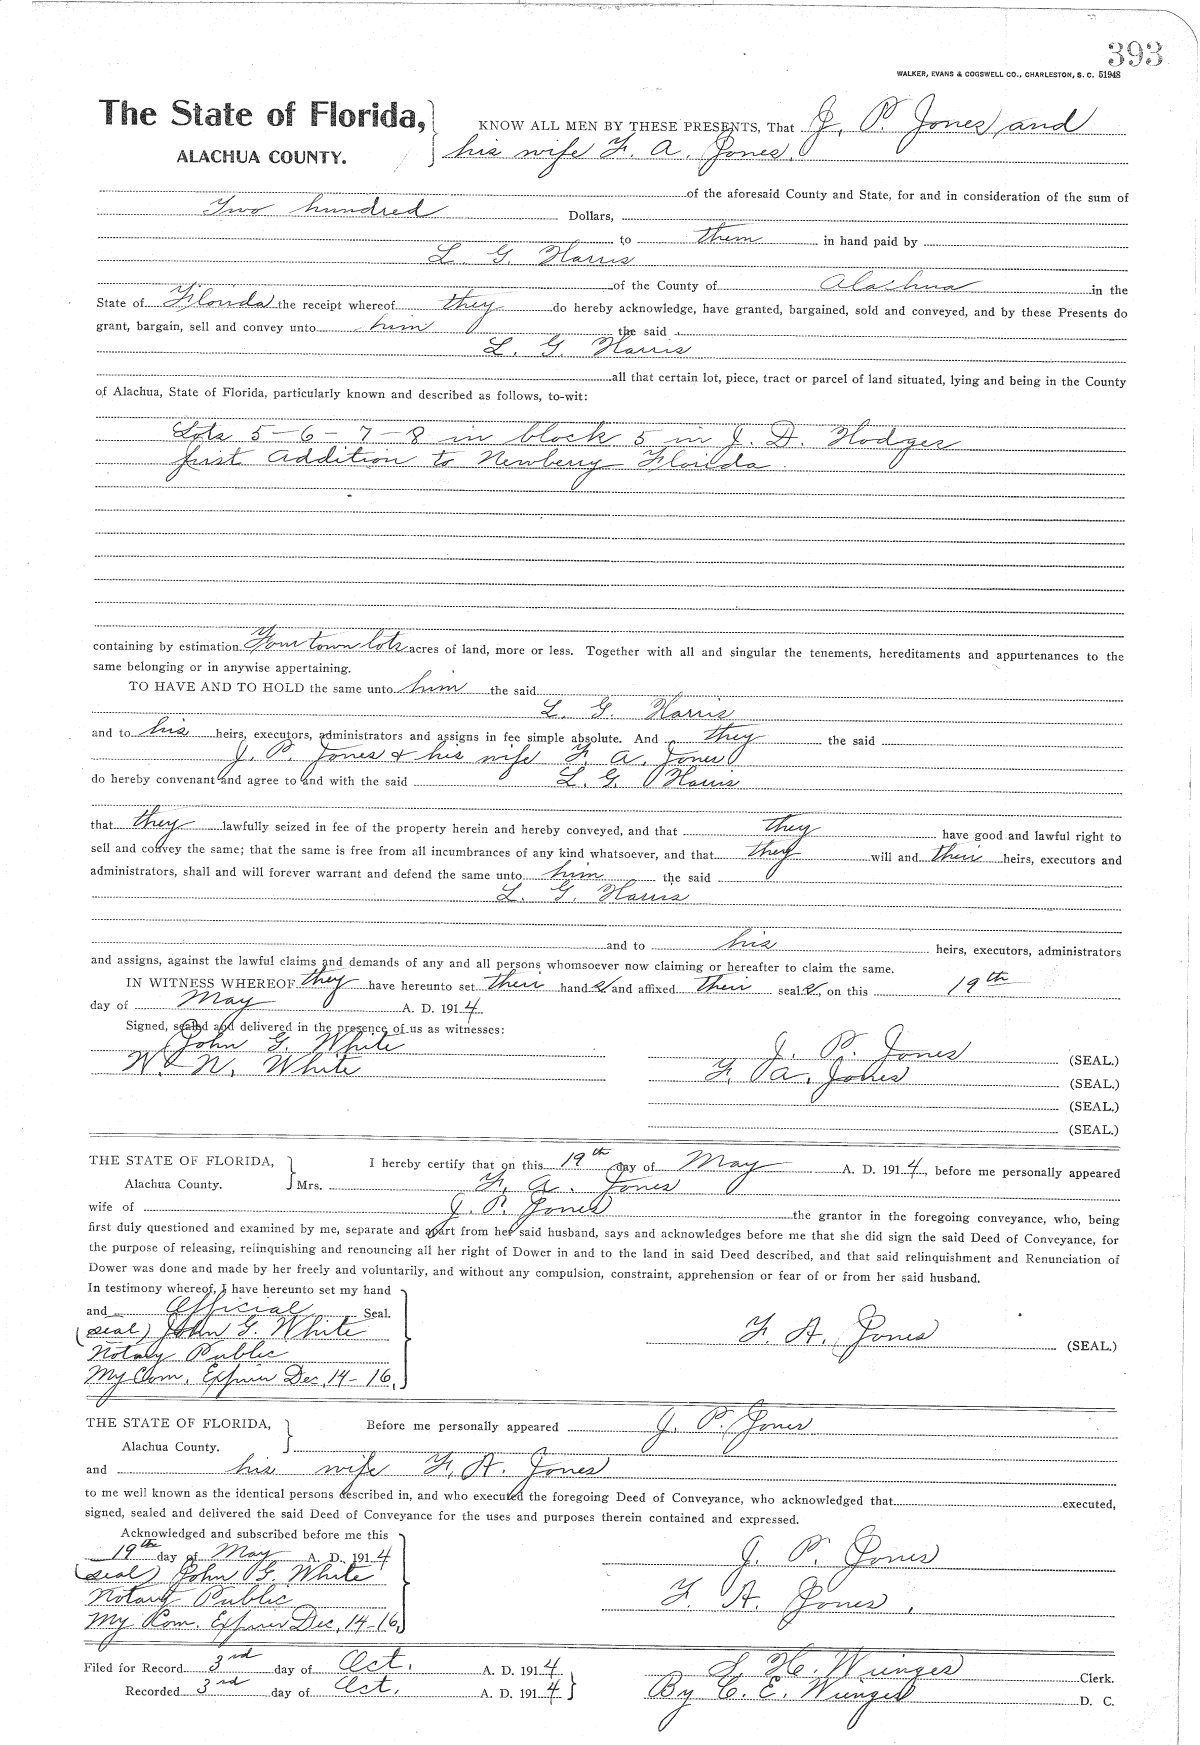 393
WALKER, EVANS & COGSWELL CO., CHARLESTON, S. C. 51948
The State of Florida,
ALACHUA COUNTY.
KNOW ALL MEN BY THESE PRESENTS, That J. P. Jones and
his wife F. A. Jones,
of the aforesaid County and State, for and in consideration of the sum of
Two hundred Dollars,
to them in hand paid by
L. G. Harris
of the County of Alachua in the
State of Florida the receipt whereof they do hereby acknowledge, have granted, bargained, sold and conveyed, and by these Presents do
grant, bargain, sell and convey unto him the said
L. G. Harris
all that certain lot, piece, tract or parcel of land situated, lying and being in the County
of Alachua, State of Florida, particularly known and described as follows, to-wit:
Lots 5-6-7-8 in block 5 in J. D. Hodges
first addition to Newberry Florida.
containing by estimation Four town lots acres of land, more or less. Together with all and singular the tenements, hereditaments and appurtenances to the
same belonging or in anywise appertaining.
TO HAVE AND TO HOLD the same unto him the said
L. G. Harris
and to his heirs, executors, administrators and assigns in fee simple absolute. And they the said
J. P. Jones & his wife F. A. Jones
do hereby convenant and agree to and with the said L. G. Harris
that they lawfully seized in fee of the property herein and hereby conveyed, and that they have good and lawful right to
sell and convey the same; that the same is free from all incumbrances of any kind whatsoever, and that they will and their heirs, executors and
administrators, shall and will forever warrant and defend the same unto him the said
L. G. Harris
and to his heirs, executors, administrators
and assigns, against the lawful claims and demands of any and all persons whomsoever now claiming or hereafter to claim the same.
IN WITNESS WHEREOF they have hereunto set their hands and affixed their seals, on this 19th
day of May A. D. 1914.
Signed, sealed and delivered in the presence of us as witnesses:
John G. White
W. N. White
J. P. Jones (SEAL.)
F. A. Jones (SEAL.)
(SEAL.)
(SEAL.)
THE STATE OF FLORIDA,
Alachua County.
I hereby certify that on this 19th day of May A. D. 1914, before me personally appeared
Mrs. F. A. Jones
wife of J. P. Jones the grantor in the foregoing conveyance, who, being
first duly questioned and examined by me, separate and apart from her said husband, says and acknowledges before me that she did sign the said Deed of Conveyance, for
the purpose of releasing, relinquishing and renouncing all her right of Dower in and to the land in said Deed described, and that said relinquishment and Renunciation of
Dower was done and made by her freely and voluntarily, and without any compulsion, constraint, apprehension or fear of or from her said husband.
In testimony whereof, I have hereunto set my hand
and Official Seal.
(seal) John G. White
Notary Public
My Com. Expires Dec, 14-16,
F. A. Jones (SEAL.)
THE STATE OF FLORIDA,
Alachua County.
Before me personally appeared J. P. Jones
and his wife F. A. Jones
to me well known as the identical persons described in, and who executed the foregoing Deed of Conveyance, who acknowledged that executed,
signed, sealed and delivered the said Deed of Conveyance for the uses and purposes therein contained and expressed.
Acknowledged and subscribed before me this
19th day of May A. D., 1914
(seal) John G. White
Notary Public
My Com. Expires Dec, 14-16,
J. P. Jones
F. A. Jones,
Filed for Record 3rd day of Oct. A. D. 1914
Recorded 3rd day of Oct. A. D. 1914
S. H. Wienges Clerk.
By C. E. Wienges D. C.